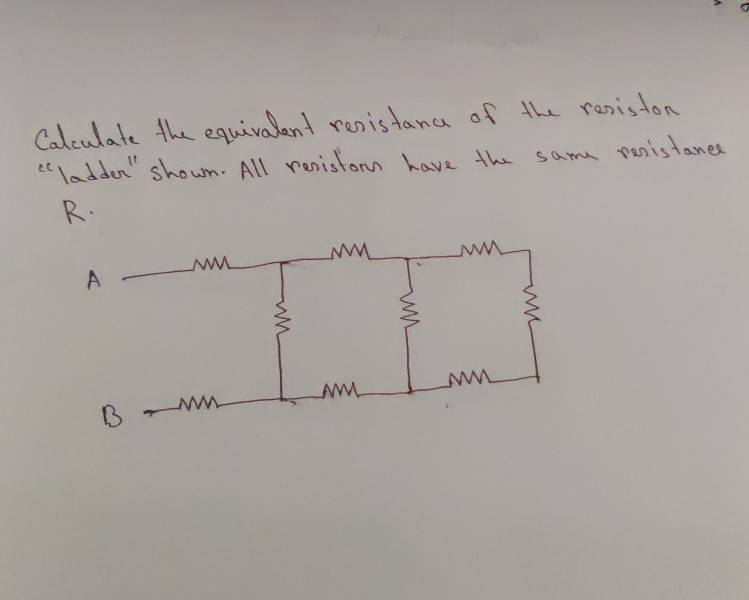 Calculate the equivalent resistance of the resistor
"ladder" shown. All resistors have the same resistance
R.
A
B